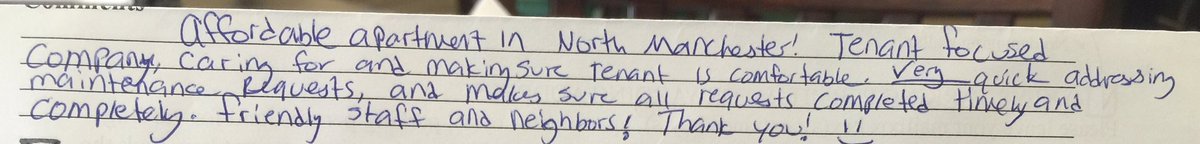 Comments
affordable apartment in North Manchester! Tenant focused
Company, caring for and making sure Tenant is comfortable. Very quick addressing
maintenance Requests, and makes sure all requests completed timely and
completely. friendly staff and neighbors! Thank you! !!